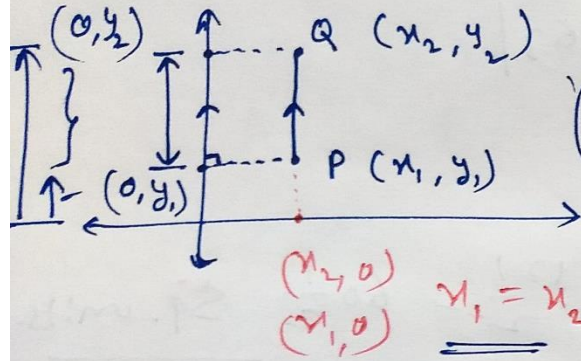 (0,y₂) Q (x₂,y₂)
(0,y₁) P (x₁,y₁)
(x₂,0)
(x₁,0) x₁ = x₂